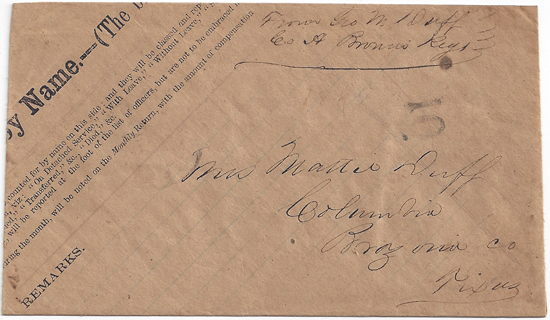 by Name.—(The
counted for by name on this side, and they will be classed and
viz: "On Detached Service," "With Leave," "Without Leave,"
"Transferred," &c., "Died," &c.
will be reported at the foot of the list of officers, but are not to be embraced
during the month, will be noted on the Monthly Return, with the amount of compensation
REMARKS.
From Geo M Duff
Co A Browns Regt
5
Mrs Mattie Duff
Columbia
Brazoria co
Texas